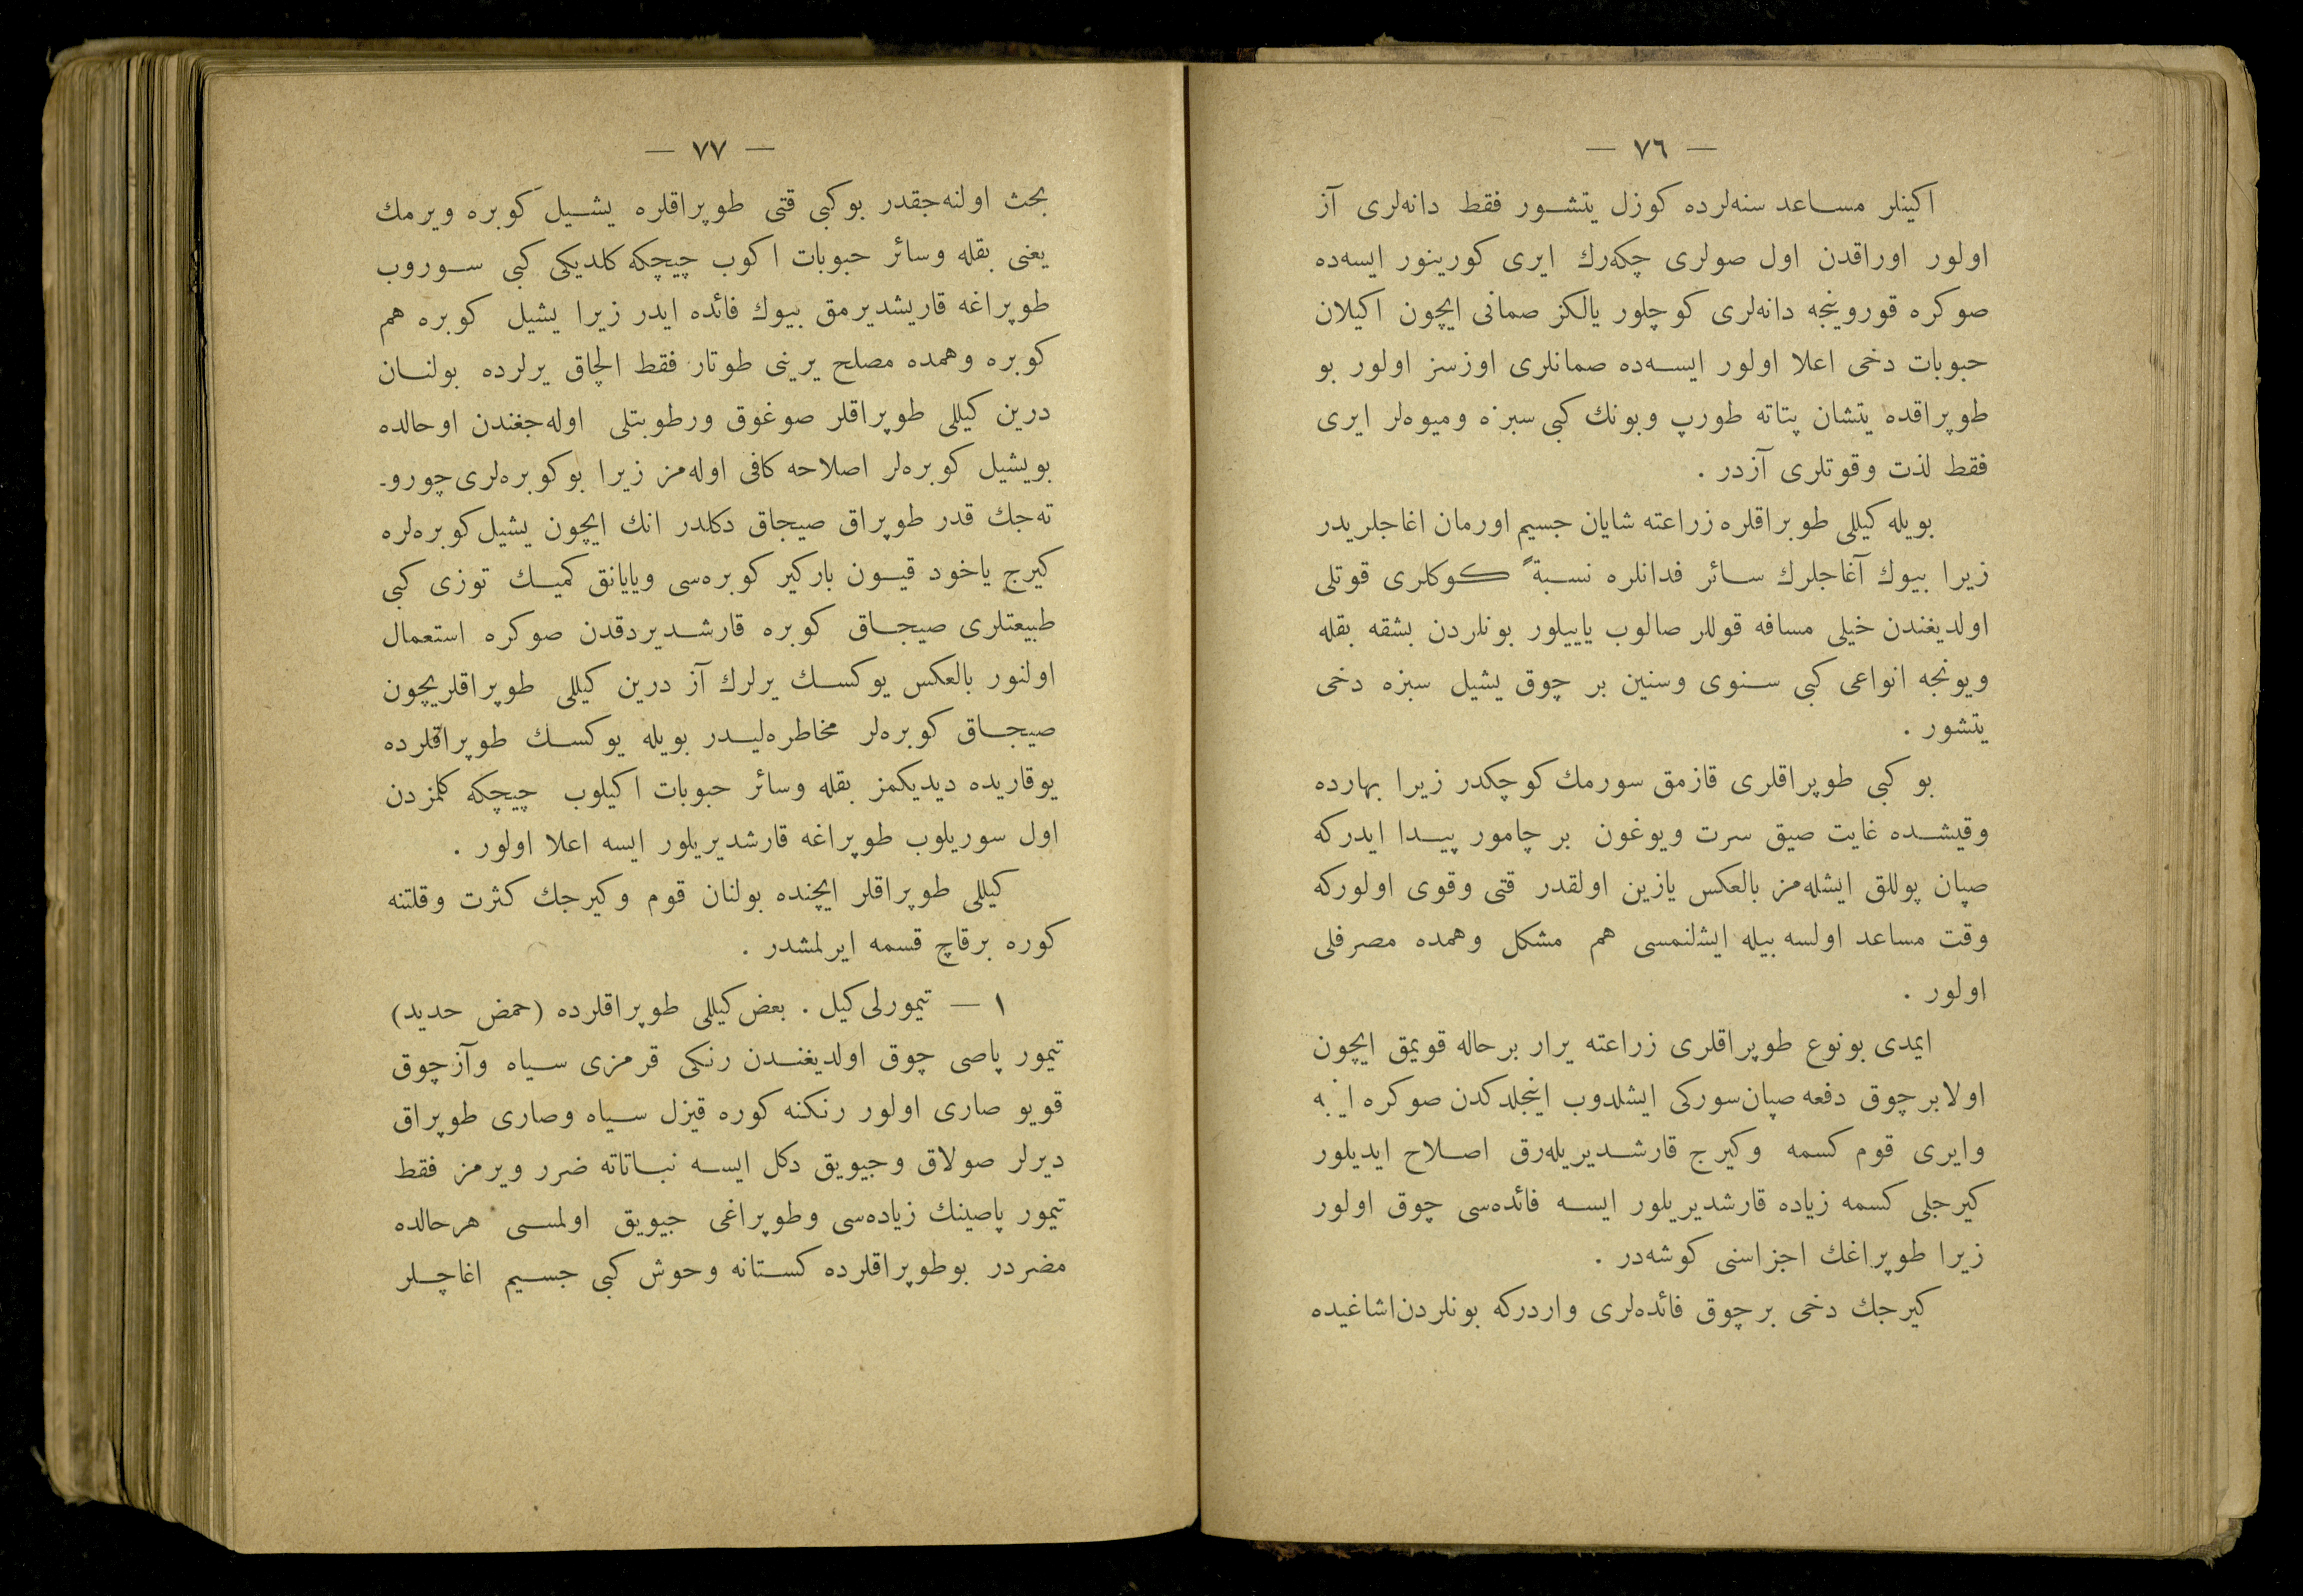 — ٧٦ —
اكينلر مساعد سنه‌لرده كوزل يتشور فقط دانه‌لرى آز
اولور اوراقدن اول صولرى چكه‌رك ايرى كورينور ايسه‌ده
صوكره قوروينجه دانه‌لرى كوچلور يالكز صمانى ايچون اكيلان
حبوبات دخى اعلا اولور ايسه‌ده صمانلرى اوزسز اولور بو
طوپراقده يتشان پتاته طورپ وبونك كبى سبزه وميوه‌لر ايرى
فقط لذت وقوتلرى آزدر .
بويله كيللى طوبراقلره زراعته شايان جسيم اورمان اغاجلريدر
زيرا بيوك آغاجلرك سائر فدانلره نسبةً كوكلرى قوتلى
اولديغندن خيلى مسافه قوللر صالوب ياييلور بونلردن بشقه بقله
ويونجه انواعى كبى سنوى وسنين بر چوق يشيل سبزه دخى
يتشور .
بو كبى طوپراقلرى قازمق سورمك كوچكدر زيرا بهارده
وقيشده غايت صيق سرت ويوغون بر چامور پيدا ايدركه
صپان پوللق ايشله‌مز بالعكس يازين اولقدر قتى وقوى اولوركه
وقت مساعد اولسه بيله ايشلنمسى هم مشكل وهمده مصرفلى
اولور .
ايمدى بونوع طوپراقلرى زراعته يرار برحاله قويمق ايچون
اولا برچوق دفعه صپان سوركى ايشلدوب اينجلدكدن صوكره
وايرى قوم كسمه وكيرج قارشديريله‌رق اصلاح ايديلور
كيرجلى كسمه زياده قارشديريلور ايسه فائده‌سى چوق اولور
زيرا طوپراغك اجزاسنى كوشه‌در .
كيرجك دخى برچوق فائده‌لرى واردركه بونلردن اشاغيده
— ٧٧ —
بحث اولنه‌جقدر بوكبى قتى طوپراقلره يشيل كوبره ويرمك
يعنى بقله وسائر حبوبات اكوب چيچكه كلديكى كبى سوروب
طوپراغه قاريشديرمق بيوك فائده ايدر زيرا يشيل كوبره هم
كوبره وهمده مصلح يرينى طوتار فقط الچاق يرلرده بولنان
درين كيللى طوپراقلر صوغوق ورطوبتلى اوله‌جغندن اوحالده
بويشيل كوبره‌لر اصلاحه كافى اوله‌مز زيرا بوكوبره‌لرى چورو-
ته‌جك قدر طوپراق صيجاق دكلدر انك ايچون يشيل كوبره‌لره
كيرج ياخود قيون باركير كوبره‌سى ويايانق كميك توزى كبى
طبيعتلرى صيجاق كوبره قارشديردقدن صوكره استعمال
اولنور بالعكس يوكسك يرلرك آز درين كيللى طوپراقلريچون
صيجاق كوبره‌لر مخاطره‌ليدر بويله يوكسك طوپراقلرده
يوقاريده ديديكمز بقله وسائر حبوبات اكيلوب چيچكه كلمزدن
اول سوريلوب طوپراغه قارشديريلور ايسه اعلا اولور .
كيللى طوپراقلر ايچنده بولنان قوم وكيرجك كثرت وقلتنه
كوره برقاچ قسمه ايرلمشدر .
١ — تيمورلى كيل . بعض كيللى طوپراقلرده (حمض حديد)
تيمور پاصى چوق اولديغندن رنكى قرمزى سياه وآز چوق
قويو صارى اولور رنكنه كوره قيزل سياه وصارى طوپراق
ديرلر صولاق وجيويق دكل ايسه نباتاته ضرر ويرمز فقط
تيمور پاصينك زياده‌سى وطوپراغى جيويق اولمسى هرحالده
مضردر بوطوپراقلرده كستانه وحوش كبى جسيم اغاچلر